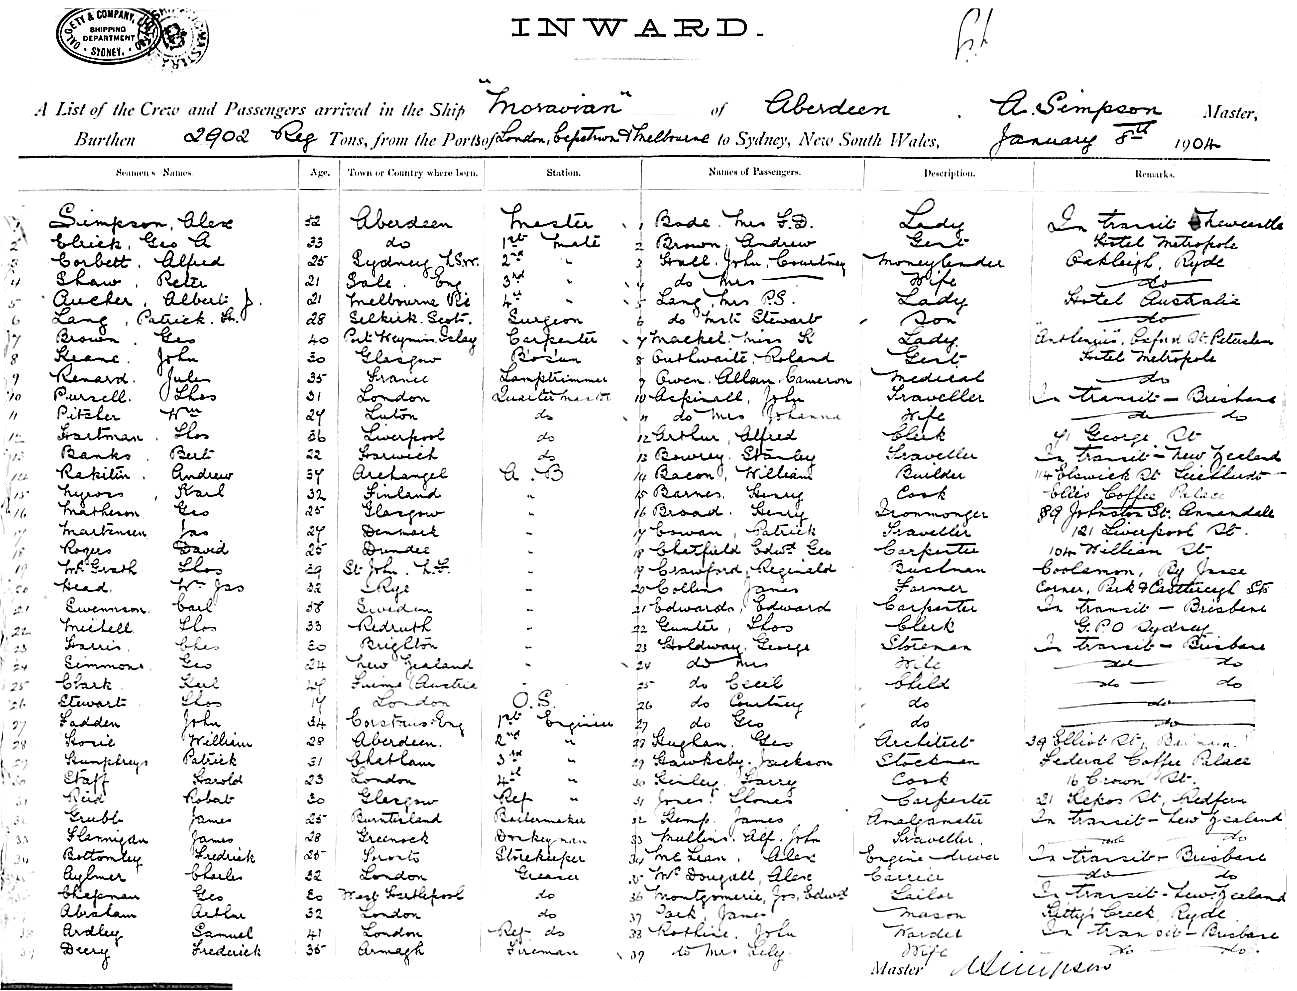 DALGETY & COMPANY, LIMITED
SHIPPING DEPARTMENT
SYDNEY.
INWARD.
A List of the Crew and Passengers arrived in the Ship "Moravian" of Aberdeen . A. Simpson Master,
Burthen 2902 Reg Tons, from the Ports of London, Capetown & Melbourne to Sydney, New South Wales, January 8th 1904
Seamen's Names. Age. Town or Country where born. Station. Names of Passengers. Description. Remarks.
Simpson, Alex 52 Aberdeen Master 1 Bode Mrs F.D. Lady In transit Newcastle
2 Elrick, Geo A 33 do 1st Mate 2 Brown, Andrew Gent Hotel Metropole
3 Corbett, Alfred 25 Sydney N.S.W. 2nd " 3 Hall, John, Courtney Moneylender Oakleigh, Ryde
4 Shaw, Peter 21 Sale. Eng 3rd " 4 do Mrs Wife do
5 Albert J. 21 Melbourne Vic 4th " 5 Lang, Mrs P.S. Lady Hotel Australia
6 Lang, Patrick. 28 Selkirk. Scot. Surgeon 6 do Mstr Stewart Son do
7 Brown, Geo 40 Port Islay Carpenter 7 Mackel, Miss K Lady Oxford St. Petersham
8 Keane, John 30 Glasgow Bo'sun 8 Cuthwaite, Roland Gent Hotel Metropole
9 Renard, Jules 35 France Lamptrimmer 9 Owen, Allan, Cameron Medical do
10 Pursell, Thos 31 London Quartermaster 10 Aspinall, John Traveller In transit - Brisbane
11 Pitzler Wm 27 Luton do 11 do Mrs Johanna Wife do do
12 Hartman, Thos 36 Liverpool do 12 Arthur, Alfred Clerk 71 George St
13 Banks, Bert 22 Harwich do 13 Bowrey, Stanley Traveller In transit - New Zealand
14 Rakitin, Andrew 37 Archangel A.B 14 Bacon, William Builder 114 Elswick St Leichhardt
15 Nyroos, Karl 32 Finland " 15 Barnes, Henry Cook Coffee Palace
16 Matheson Geo 25 Glasgow " 16 Broad, Henry Ironmonger 89 Johnston St. Annandale
17 Martensen Jas 27 Denmark " 17 Cowan, Patrick Traveller 121 Liverpool St.
18 Rogers David 25 Dundee " 18 Chatfield Edwd. Geo Carpenter 104 William St
19 McGrath Thos 29 St John. N.F. " 19 Crawford, Reginald Bushman Coolamon, By Junee
20 Head, Wm Jas 32 Rye " 20 Collins James Farmer Corner, Park & Castlereigh Sts
21 Swennson, Carl 38 Sweden " 21 Edwards, Edward Carpenter In transit - Brisbane
22 Mitchell Thos 33 Redruth " 22 Gunter, Thos Clerk G.P.O Sydney
23 Harris, Chas 20 Brighton " 23 Holdway, George Storeman In transit - Brisbane
24 Simmons, Geo 24 New Zealand " 24 do Mrs Wife do do
25 Clark Karl 47 Fiume Austria " 25 do Cecil Child do do
26 Stewart Thos 17 London O.S. 26 do Courtney do do
27 Fadden John 34 Eng 1st Engineer 27 do Geo do do
28 Hosie William 29 Aberdeen. 2nd " 28 Hughan. Geo Architect 39 Elliot St, Balmain.
29 Humphreys Patrick 31 Chatham 3rd " 29 Hawksby, Jackson Stockman Federal Coffee Palace
30 Staff Harold 23 London 4th " 30 Harry Cook 16 Crown St.
31 Reid Robert 30 Glasgow Ref " 31 Jones, Carpenter 21 Kepos St, Redfern
32 Grubb James 25 Burntisland Boilermaker 32 Kemp, James Amalgamater In transit - New Zealand
33 Flannigan James 28 Greenock Donkeyman 33 Mullins, Alf, John Traveller. do do
34 Bottomley Fredrick 25 Storekeeper 34 McLean, Alex Engine-driver In transit - Brisbane
35 Aylmer Charles 32 London Greaser 35 McDougall, Alex Carrier do do
Chapman Geo 20 West Hartlepool do 36 Montgomerie, Jos, Edwd Sailor In transit - New Zealand
Abraham Arthur 32 London do 37 Park, James Mason Kitty's Creek, Ryde
38 Ardley Samuel 41 London Ref do 38 John Warder In transit - Brisbane
39 Deery Frederick 35 Armagh Fireman 39 do Mrs Lily Wife do do
Master ASimpson